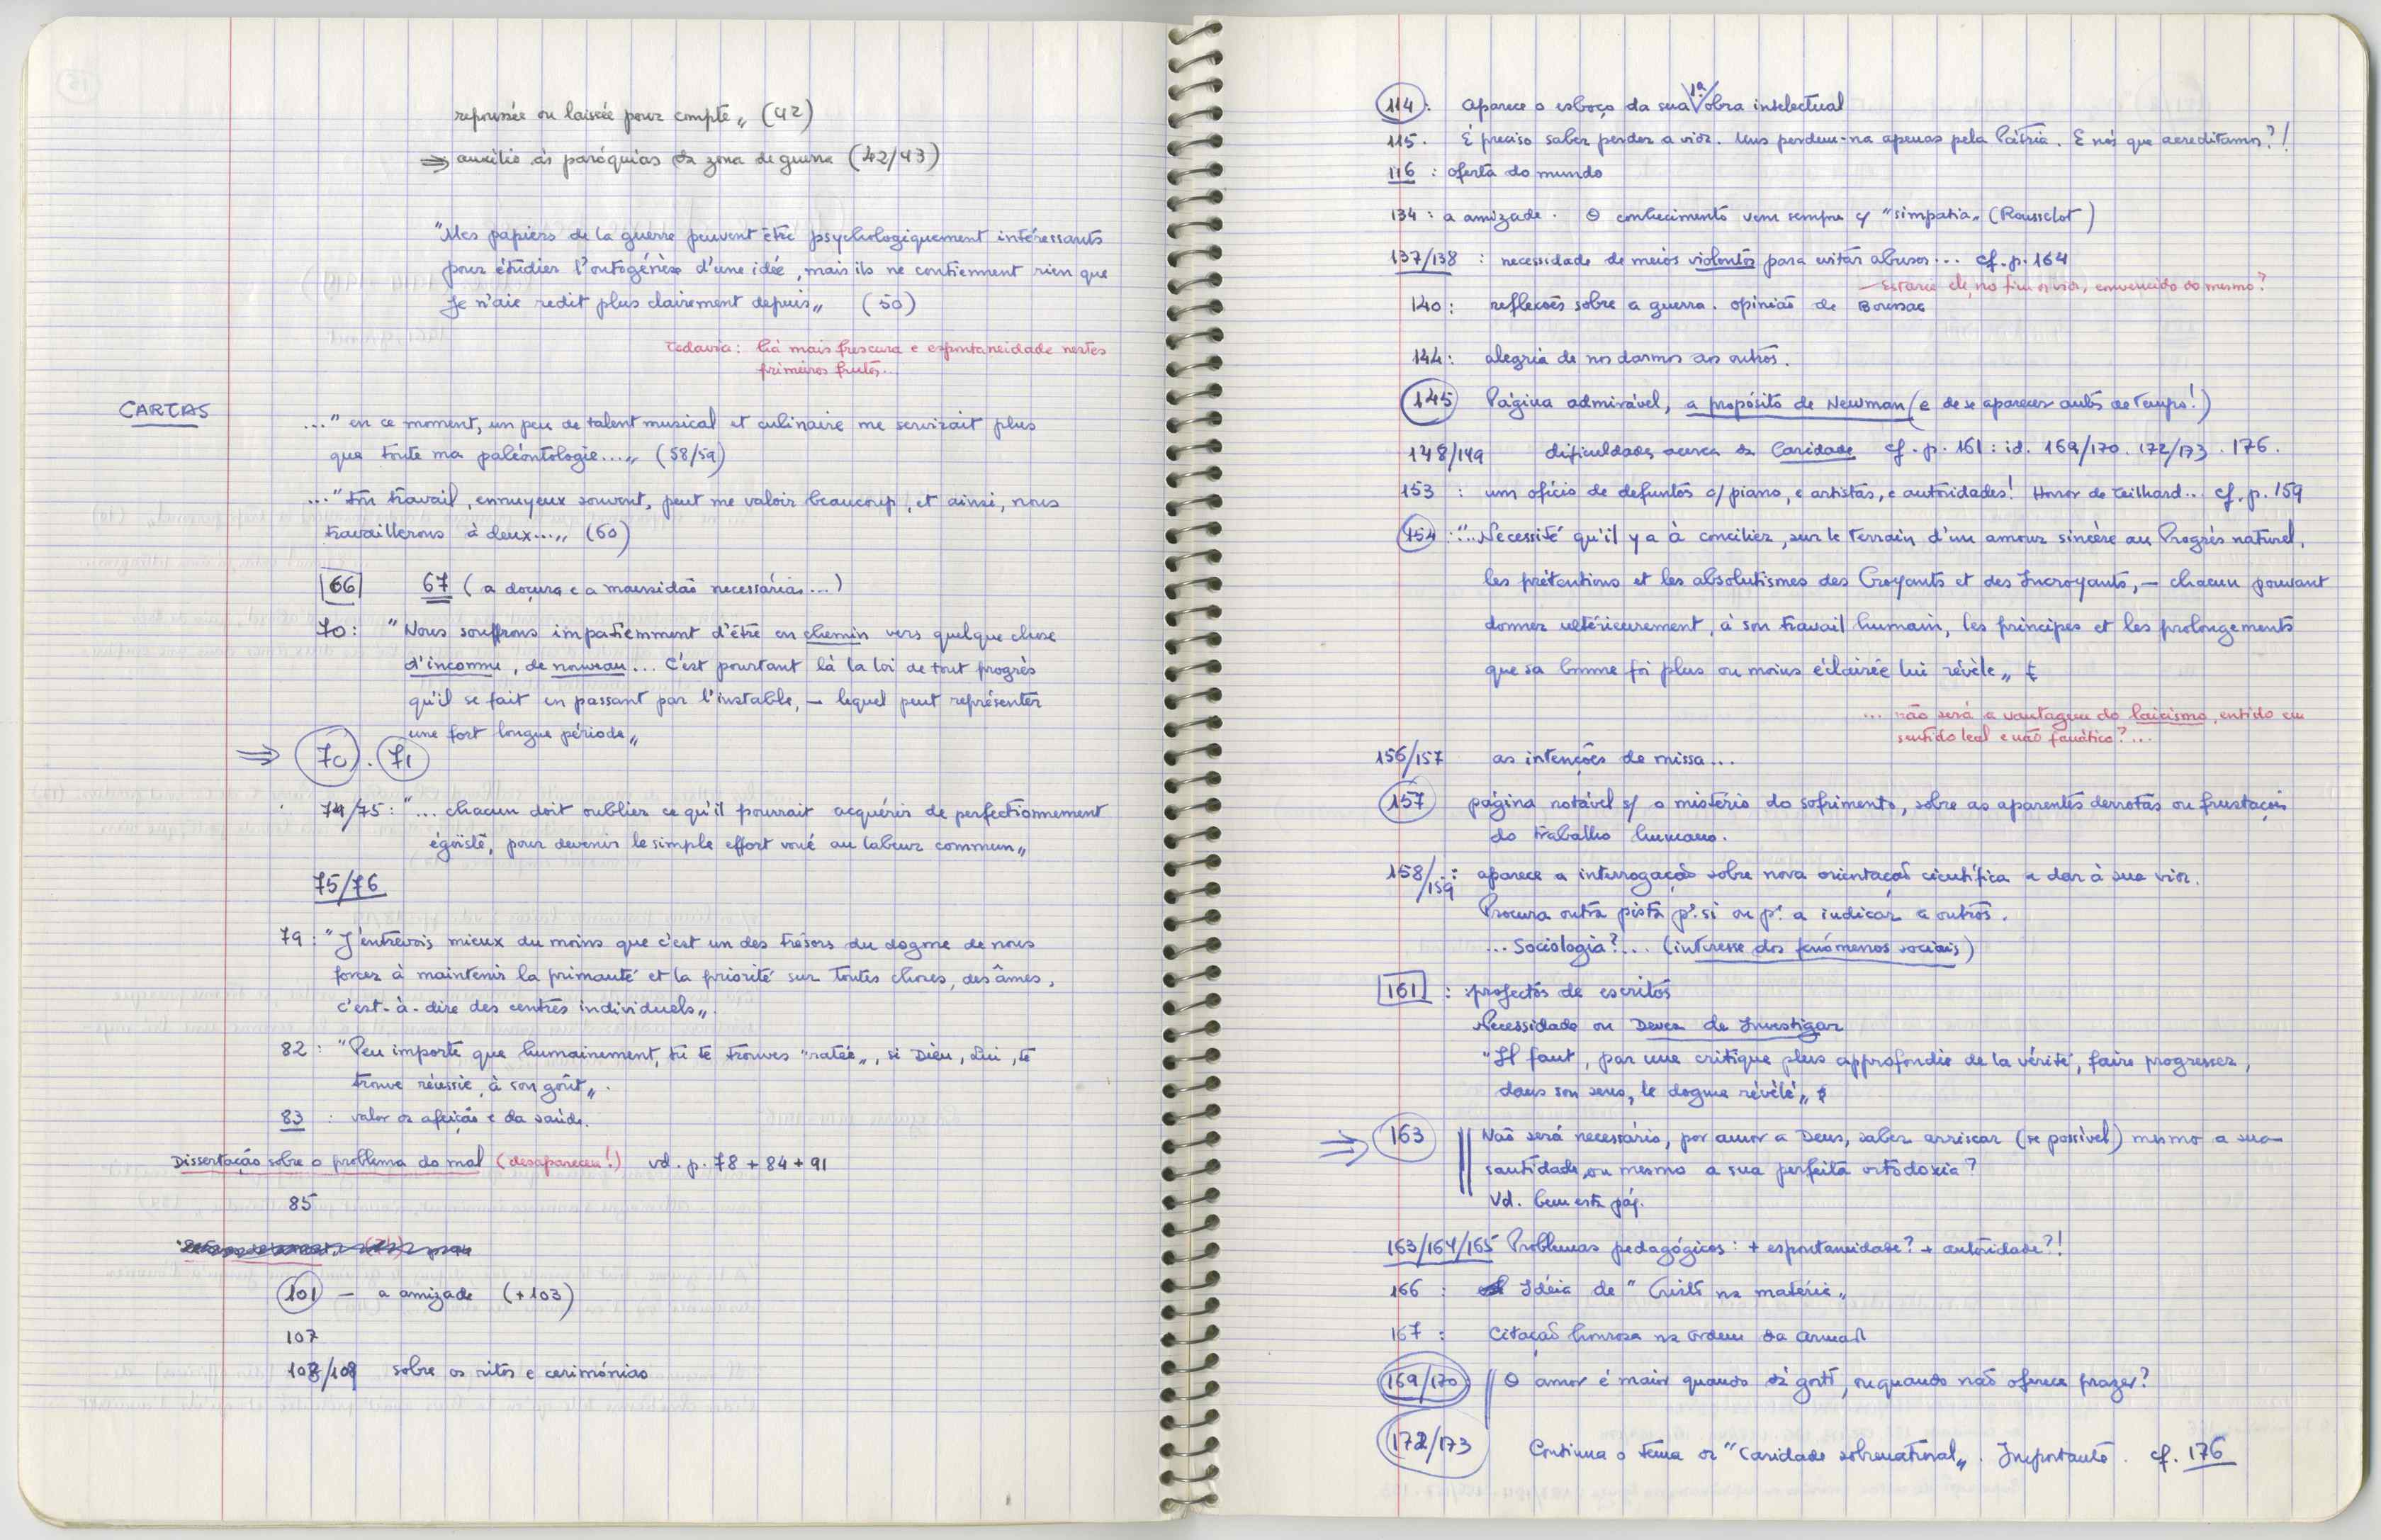 repoussée ou laissée pour compte„ (42)
⇒ auxílio às paróquias da zona de guerra (42/43)
"Mes papiers de la guerre peuvent être psychologiquement intéressants
pour étudier l'ontogénèse d'une idée, mais ils ne contiennent rien que
je n'aie redit plus clairement depuis„ (50)
todavia: há mais frescura e espontaneidade nestes
primeiros frutos...
CARTAS
..." en ce moment, un peu de talent musical et culinaire me servirait plus
que toute ma paléontologie...„ (58/59)
..." ton travail, ennuyeux souvent, peut me valoir beaucoup, et ainsi, nous
travaillerons à deux...„ (60)
66 67 (a doçura e a mansidão necessárias...)
70: "Nous souffrons impatiemment d'être en chemin vers quelque chose
d'inconnu, de nouveau... C'est pourtant là la loi de tout progrès
qu'il se fait en passant par l'instable, – lequel peut représenter
une fort longue période„
⇒ 70. 71
74/75: "... chacun doit oublier ce qu'il pourrait acquérir de perfectionnement
égoïste, pour devenir le simple effort voué au labeur commun„
75/76
79: "J'entrevois mieux du moins que c'est un des trésors du dogme de nous
forcer à maintenir la primauté et la priorité sur toutes choses, des âmes,
c'est-à-dire des centres individuels„.
82: "Peu importe que humainement, tu te trouves "ratée„, si Dieu, Lui, te
trouve réussie, à son goût„.
83 : valor da afeição e da saúde.
Dissertação sobre o problema do mal (desapareceu!) vd. p. 78 + 84 + 91
85
101 – a amizade (+103)
107
108/109 sobre os ritos e cerimónias
114: aparece o esboço da sua 1ª obra intelectual
115. É preciso saber perder a vida. Uns perdem-na apenas pela Pátria. E nós que acreditamos?!
116 : oferta do mundo
134: a amizade. O conhecimento vem sempre c/ "simpatia„ (Rousselot)
137/138 : necessidade de meios violentos para evitar abusos... cf. p. 164
– Estaria ele, no fim da vida, convencido do mesmo?
140: reflexões sobre a guerra. opinião de Boussac
144: alegria de nos darmos aos outros.
145 Página admirável, a propósito de Newman (e de se aparecer antes de tempo!)
148/149 dificuldades acerca da Caridade cf. p. 161: id. 169/170. 172/173. 176.
153 : um ofício de defuntos c/ piano, e artistas, e autoridades! Horror de Teilhard... cf. p. 159
154: "...Necessité qu'il y a à concilier, sur le terrain d'un amour sincère au Progrès naturel,
les prétentions et les absolutismes des Croyants et des Incroyants, – chacun pouvant
donner ultérieurement, à son travail humain, les principes et les prolongements
que sa bonne foi plus ou moins éclairée lui révèle„
... não será a vantagem do laicismo, entido em
sentido leal e não fanático?...
156/157 as intenções de missa...
157 página notável s/ o mistério do sofrimento, sobre as aparentes derrotas ou frustações
do trabalho humano.
158/159: aparece a interrogação sobre nova orientação científica a dar à sua vida.
Procura outra pista pª. si ou pª. a indicar a outros.
... Sociologia?... (interesse dos fenómenos sociais)
161 : projectos de escritos
Necessidade ou Dever de Investigar
"Il faut, par une critique plus approfondie de la vérité, faire progresser,
dans son sens, le dogme révélé„
⇒ 163 Não será necessário, por amor a Deus, saber arriscar (se possível) mesmo a sua
santidade, ou mesmo a sua perfeita ortodoxia?
Vd. bem esta pág.
163/164/165 Problemas pedagógicos: + espontaneidade? + autoridade?!
166 : Ideia de "Cristo na matéria„
167 : Citação honrosa na ordem da armada
169/170 O amor é maior quando dá gosto, ou quando não oferece prazer?
172/173 Continua o tema da "Caridade sobrenatural„. Importante. cf. 176